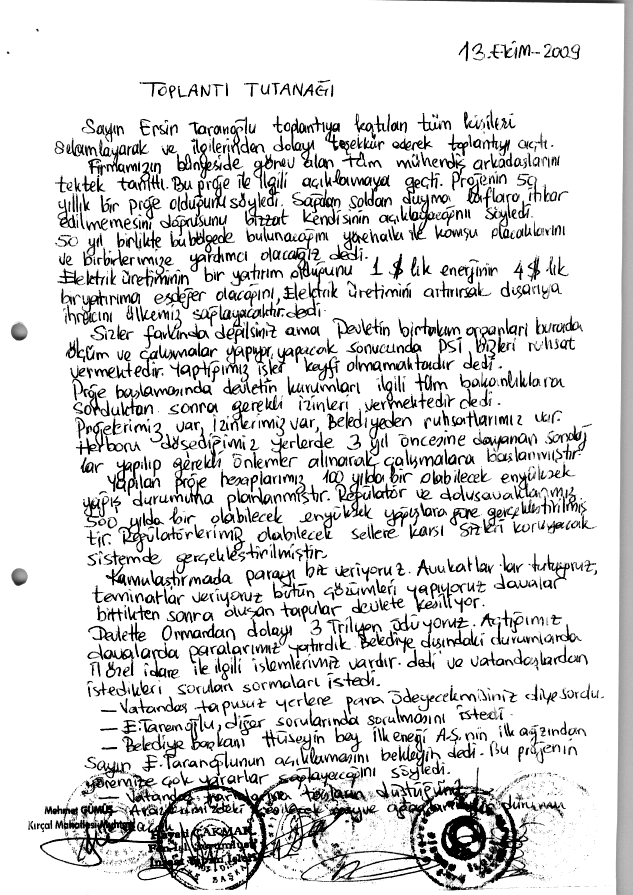 13.EKİM-2009
TOPLANTI TUTANAĞI
Sayın Ersin Taranoğlu toplantıya katılan tüm kişileri
selamlayarak ve ilgilerinden dolayı teşekkür ederek toplantıyı açtı.
Firmamızın bünyeside görev alan tüm mühendis arkadaşlarını
tektek tanıttı. Bu proje ile ilgili açıklamaya geçti. Projenin 50
yıllık bir proje olduğunu söyledi. Sağdan soldan duyma laflara itibar
edilmemesini doğrusunu bizzat kendisinin açıklayacağını söyledi.
50 yıl birlikte bu bölgede bulunacağını yörehalkı ile komşu olacaklarını
ve birbirlerimize yardımcı olacağız dedi.
Elektrik üretiminin bir yatırım olduğunu 1 $ lık enerjinin 4 $ lık
biryatırıma eşdeğer olacağını, Elektrik üretimini artırırsak dışarıya
ihracını ülkemiz sağlayacaktır dedi.
Sizler farkında değilsiniz ama Devletin birtakım organları burada
ölçüm ve çalışmalar yapıyor, yapacak sonucunda DSİ bizleri ruhsat
vermektedir. Yaptığımız işler keyfi olmamaktadır dedi.
Proje başlamasında devletin kurumları ilgili tüm bakanlıklara
sorduktan sonra gerekli izinleri vermektedir dedi.
Projelerimiz var, izinlerimiz var, Belediyeden ruhsatlarımız var.
Herboru döşediğimiz yerlerde 3 yıl öncesine dayanan sondaj
lar yapılıp gerekli önlemler alınarak çalışmalara başlanmıştır.
Yapılan proje hesaplarımız 100 yılda bir olabilecek enyüksek
yağış durumuna planlanmıştır. Regülatör ve dolusavaklarımız
500 yılda bir olabilecek enyüksek yağışlara göre gerçekleştirilmiş
tir. Regülatörlerimiz olabilecek sellere karşı sizleri koruyacak
sistemde gerçekleştirilmiştir.
Kamulaştırmada parayı biz veriyoruz. Avukatlar tutuyoruz,
teminatlar veriyoruz bütün çözümleri yapıyoruz davalar
bittikten sonra oluşan tapular devlete kesiliyor.
Devlete Ormandan dolayı 3 Trilyon ödüyoruz. Açtığımız
davalarda paralarımız yatırdık. Belediye dışındaki durumlarda
İl özel idare ile ilgili işlemlerimiz vardır. dedi ve vatandaşlardan
istedikleri soruları sormaları istedi.
— Vatandaş tapusuz yerlere para ödeyecekmisiniz diye sordu.
— E.Taranoğlu, diğer sorularında sorulmasını istedi.
— Belediye başkanı Hüseyin bey ilk eneği A.Ş.nin ilk ağzından
Sayın E.Taranoğlunun açıklamasını bekleyin dedi. Bu projenin
yöremize çok yararlar sağlayacağını söyledi.
— Vatandaş taşların düştüğünü
— Arazilerimizdeki meyve ağaçlarının durumu
Mehmet GÜMÜŞ
Kırçal Mahallesi Muhtarı
ÇAKMAK